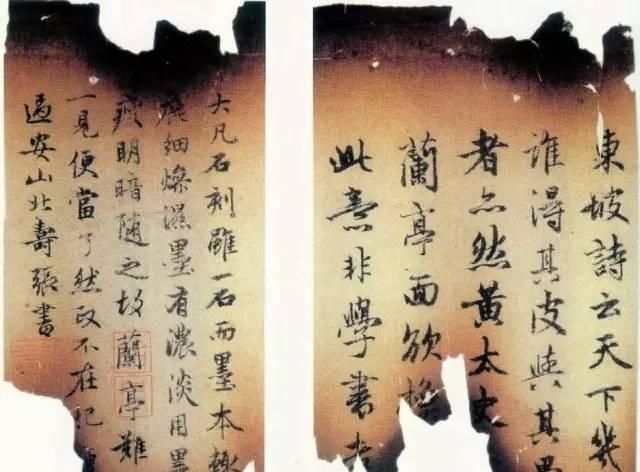 東坡詩云天下幾
誰得其皮與其
者亦然黃太史
蘭亭面欲換
此意非學書者
大凡石刻雖一石而墨本輒
麁細燥濕墨有濃淡用墨
瘦明暗隨之故蘭亭難
一見便當了然政不在肥
過安山北壽張書